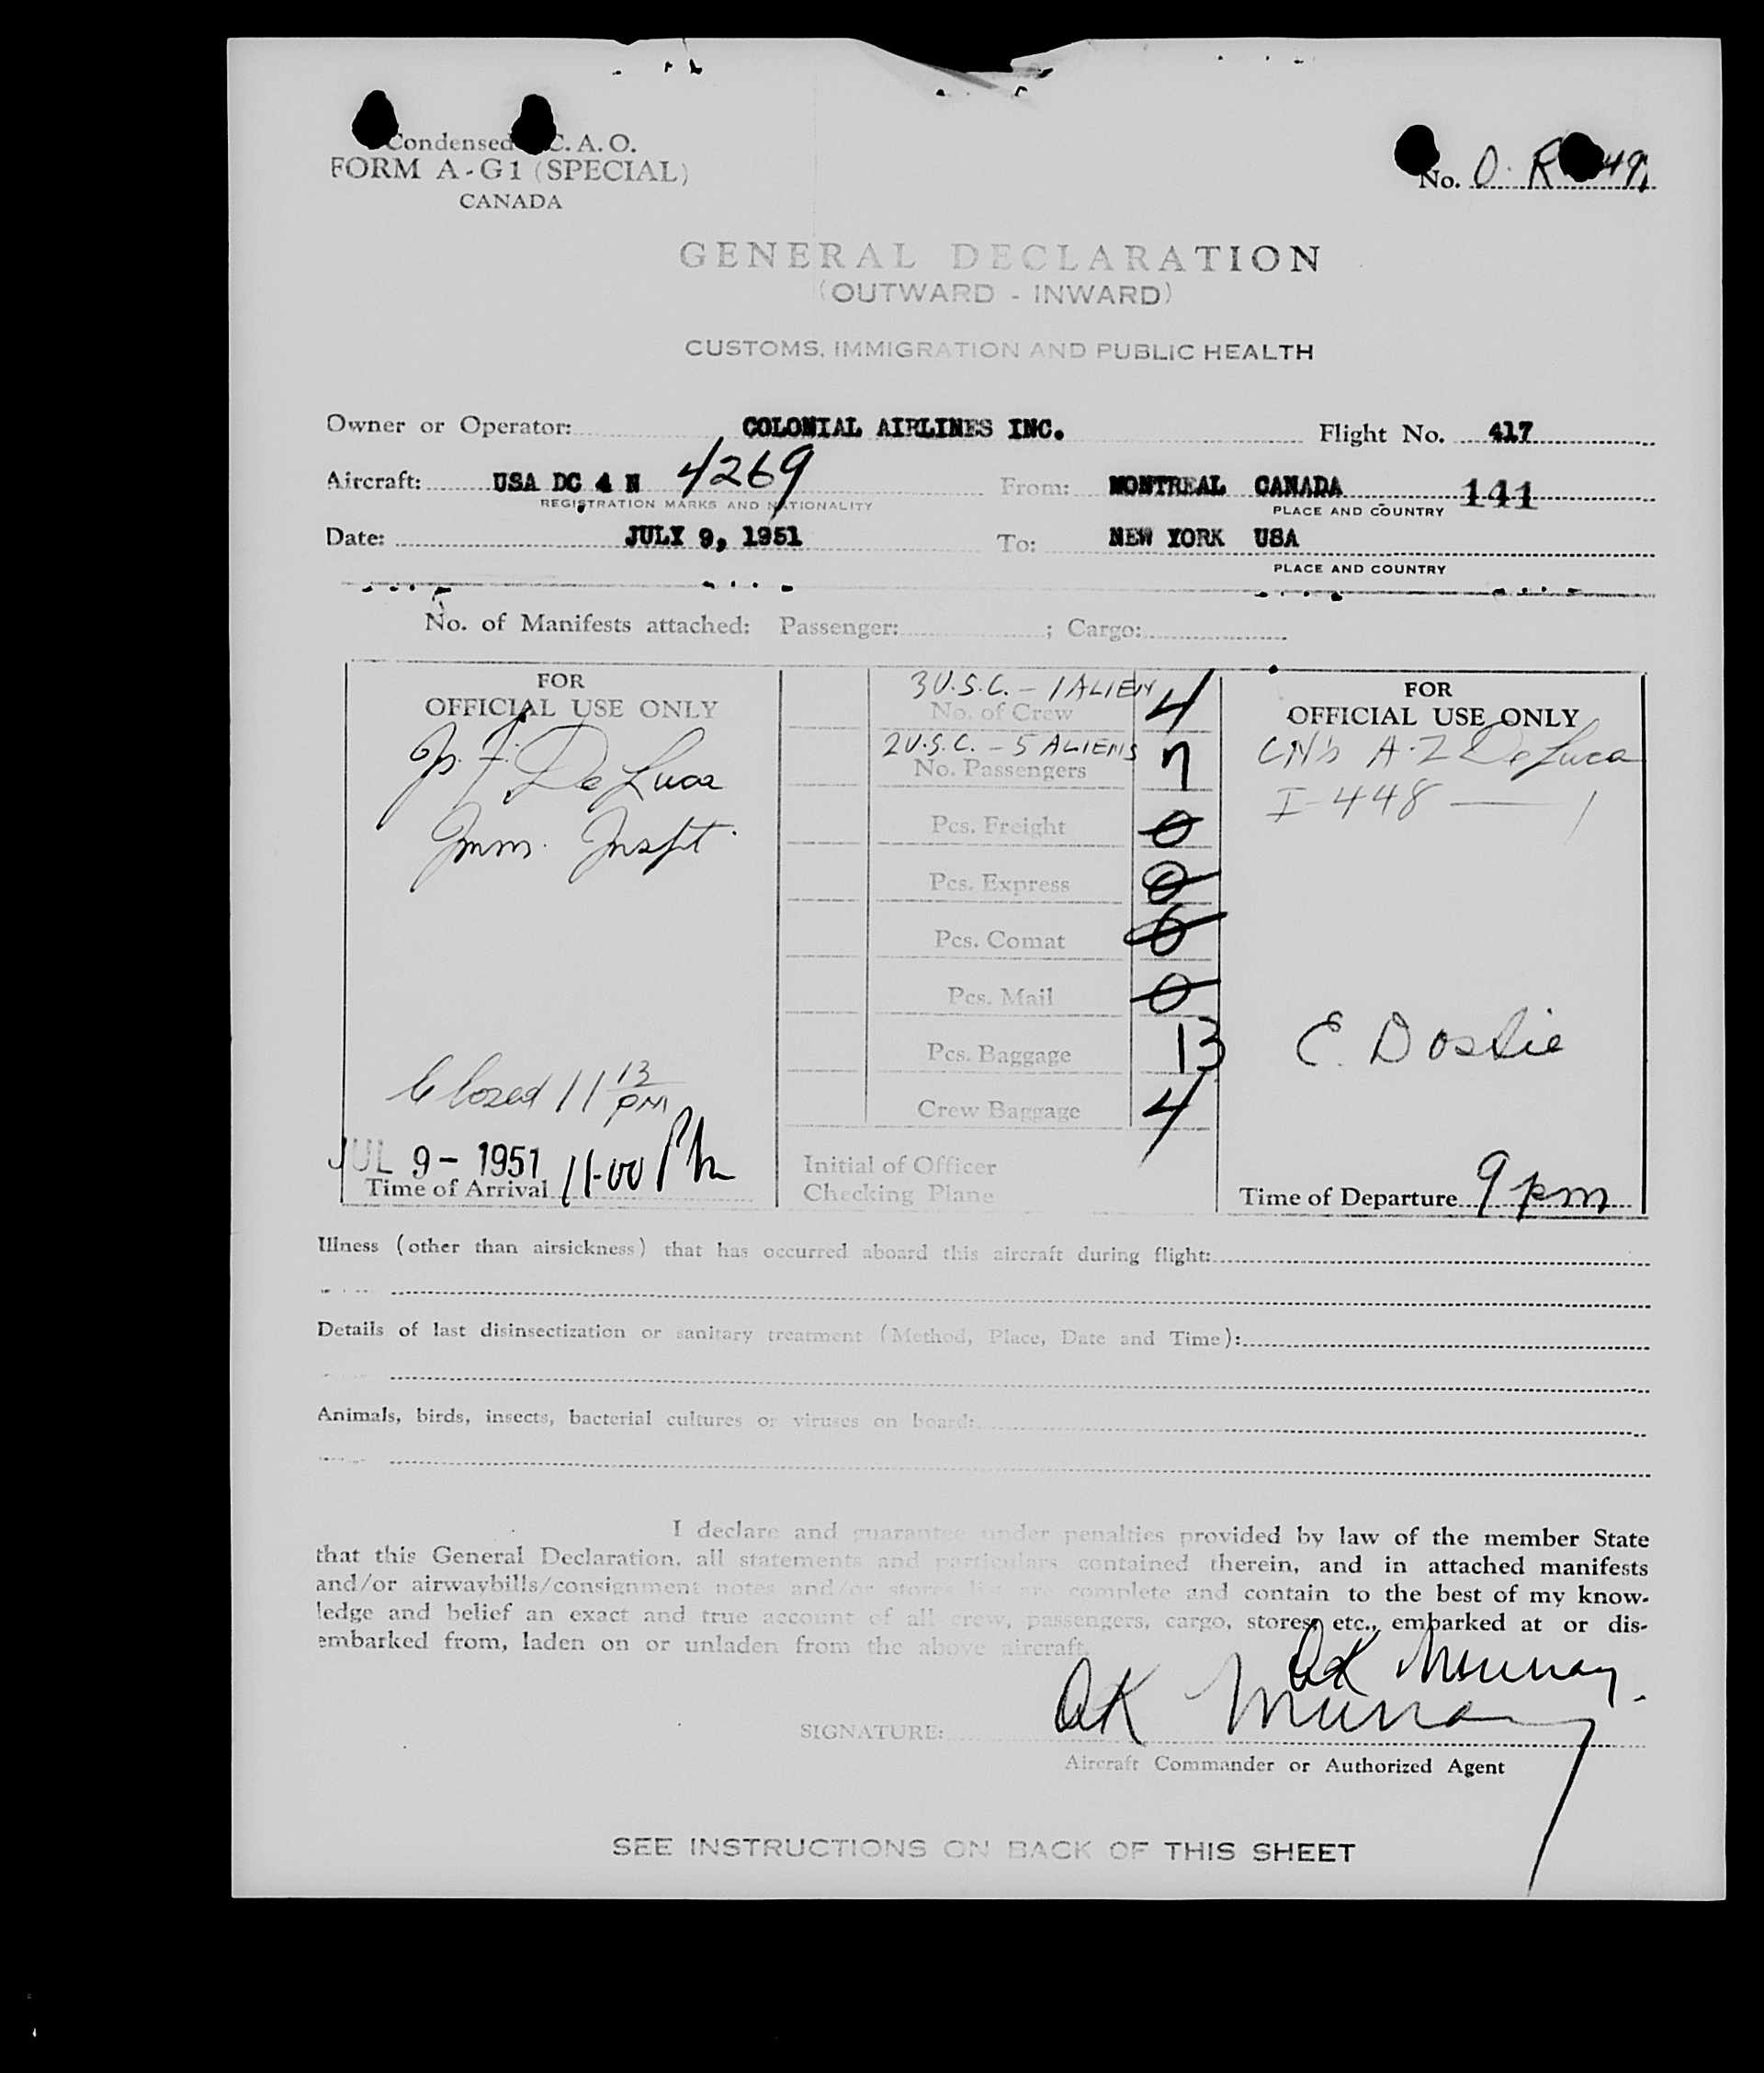 Condensed C. A. O.
FORM A-G1 (SPECIAL)
CANADA
No. O. R 49
GENERAL DECLARATION
(OUTWARD - INWARD)
CUSTOMS, IMMIGRATION AND PUBLIC HEALTH
Owner or Operator: COLONIAL AIRLINES INC. Flight No. 417
Aircraft: USA DC 4 N 4269 From: MONTREAL CANADA 141
REGISTRATION MARKS AND NATIONALITY PLACE AND COUNTRY
Date: JULY 9, 1951 To: NEW YORK USA
PLACE AND COUNTRY
No. of Manifests attached: Passenger: ; Cargo:
FOR
OFFICIAL USE ONLY
De Luca
Imm. Inspt.
Closed 11 13 PM
JUL 9 - 1951 11-00 Pm
Time of Arrival
3 U.S.C. - 1 ALIEN
No. of Crew 4
2 U.S.C. - 5 ALIENS
No. Passengers 7
Pcs. Freight 0
Pcs. Express 0
Pcs. Comat 0
Pcs. Mail 0
Pcs. Baggage 13
Crew Baggage 4
Initial of Officer
Checking Plane
FOR
OFFICIAL USE ONLY
A-2 DeLuca
I-448 — 1
E. Doslie
Time of Departure 9 pm
Illness (other than airsickness) that has occurred aboard this aircraft during flight:
Details of last disinsectization or sanitary treatment (Method, Place, Date and Time):
Animals, birds, insects, bacterial cultures or viruses on board:
I declare and guarantee under penalties provided by law of the member State
that this General Declaration, all statements and particulars contained therein, and in attached manifests
and/or airwaybills/consignment notes and/or stores list are complete and contain to the best of my know-
ledge and belief an exact and true account of all crew, passengers, cargo, stores, etc., embarked at or dis-
embarked from, laden on or unladen from the above aircraft.
AK Murray
SIGNATURE: AK Murray
Aircraft Commander or Authorized Agent
SEE INSTRUCTIONS ON BACK OF THIS SHEET